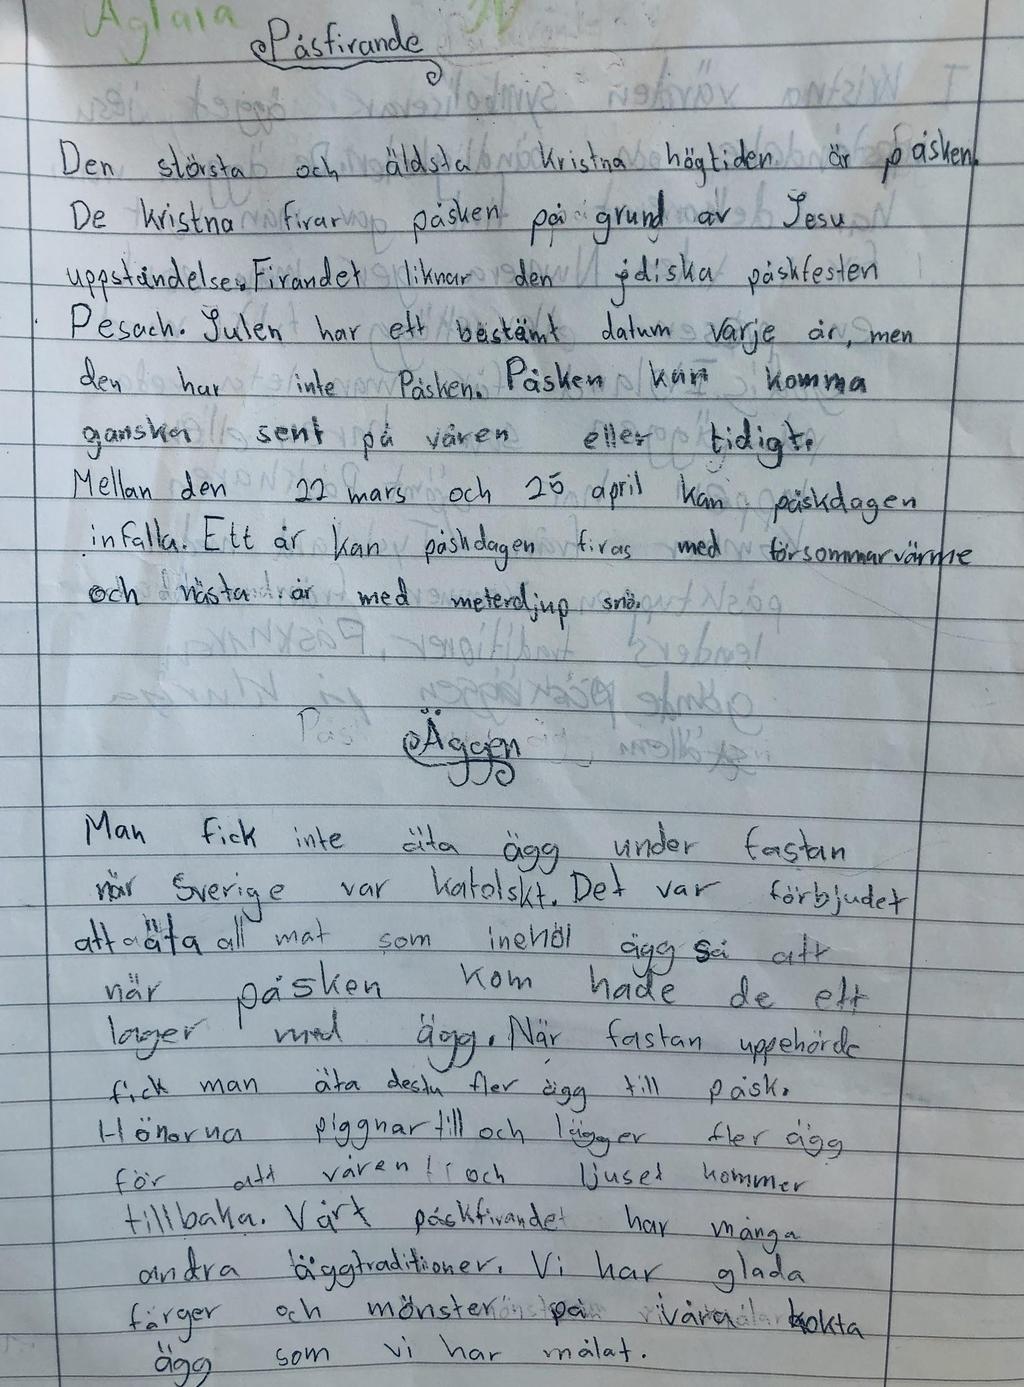 Aglaia
Påsfirande
Den största och äldsta kristna högtiden är påsken.
De kristna firar påsken på grund av Jesu
uppståndelse. Firandet liknar den jdiska påskfesten
Pesach. Julen har ett bestämt datum varje år, men
den har inte Påsken. Påsken kan komma
ganska sent på våren eller tidigt.
Mellan den 22 mars och 25 april kan påskdagen
infalla. Ett år kan påskdagen firas med försommarvärme
och nästa år med meterdjup snö.
Äggen
Man fick inte äta ägg under fastan
när Sverige var katolskt. Det var förbjudet
att äta all mat som inehöl ägg så att
när påsken kom hade de ett
lager med ägg. När fastan uppehörde
fick man äta destu fler ägg till påsk.
Hönorna piggnar till och lägger fler ägg
för att våren och ljuset kommer
tillbaka. Vårt påskfirandet har många
andra äggtraditioner. Vi har glada
färger och mönster på våra kokta
ägg som vi har målat.